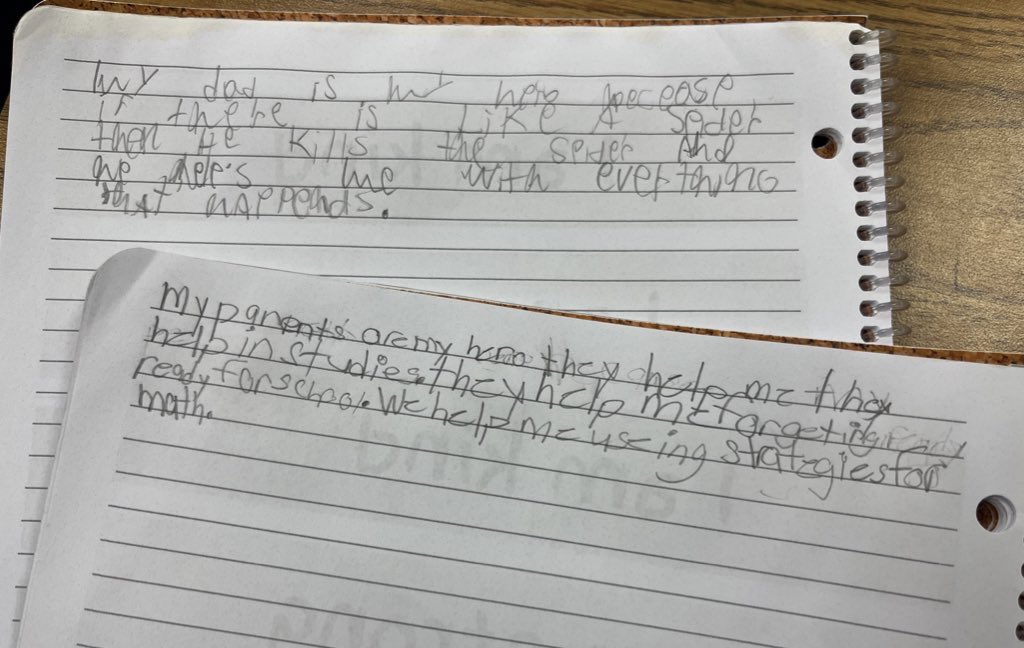 My dad is my hero becease
if there is Like A Seder
then He kills the seder And
he hele's me with everthing
that happends.
My panents are my hero they help me they
help in studies. They help me forgeting ready
ready for school. We help me useing stratzgies for
math.
I am kind
strong